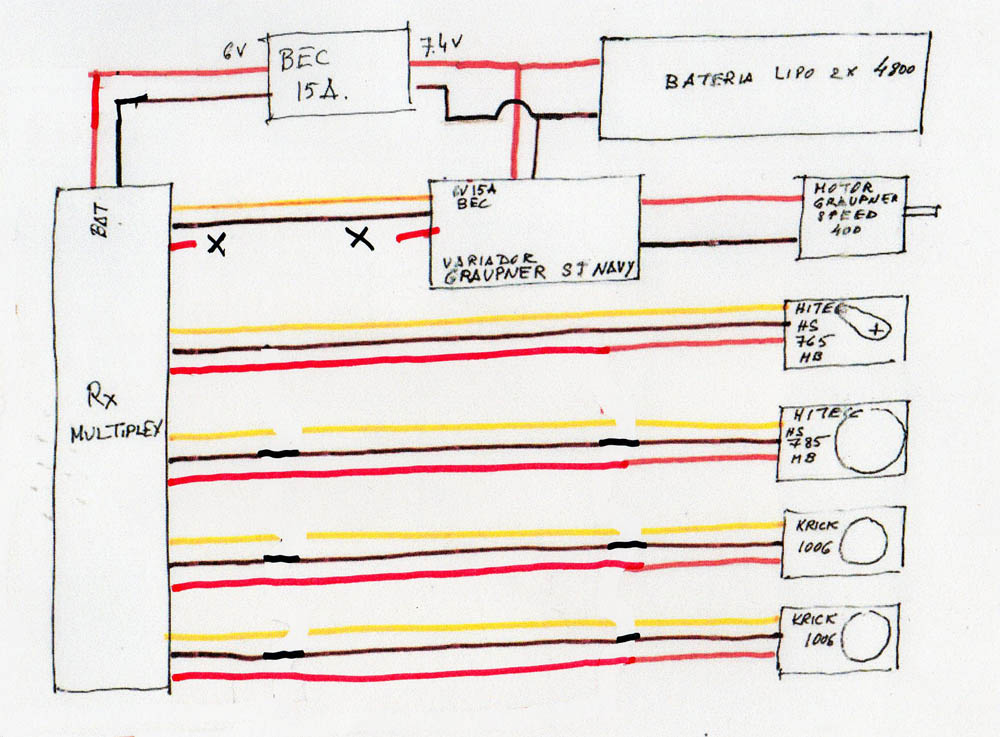 6V
BEC
15A.
7.4V
BATERIA LIPO 2X 4800
BAT
6V15A
BEC
VARIADOR
GRAUPNER SJ NAVY
MOTOR
GRAUPNER
SPEED
400
X
X
HITEC
HS
765
MB
Rx
MULTIPLEX
HITEC
HS
785
MB
KRICK
1006
KRICK
1006